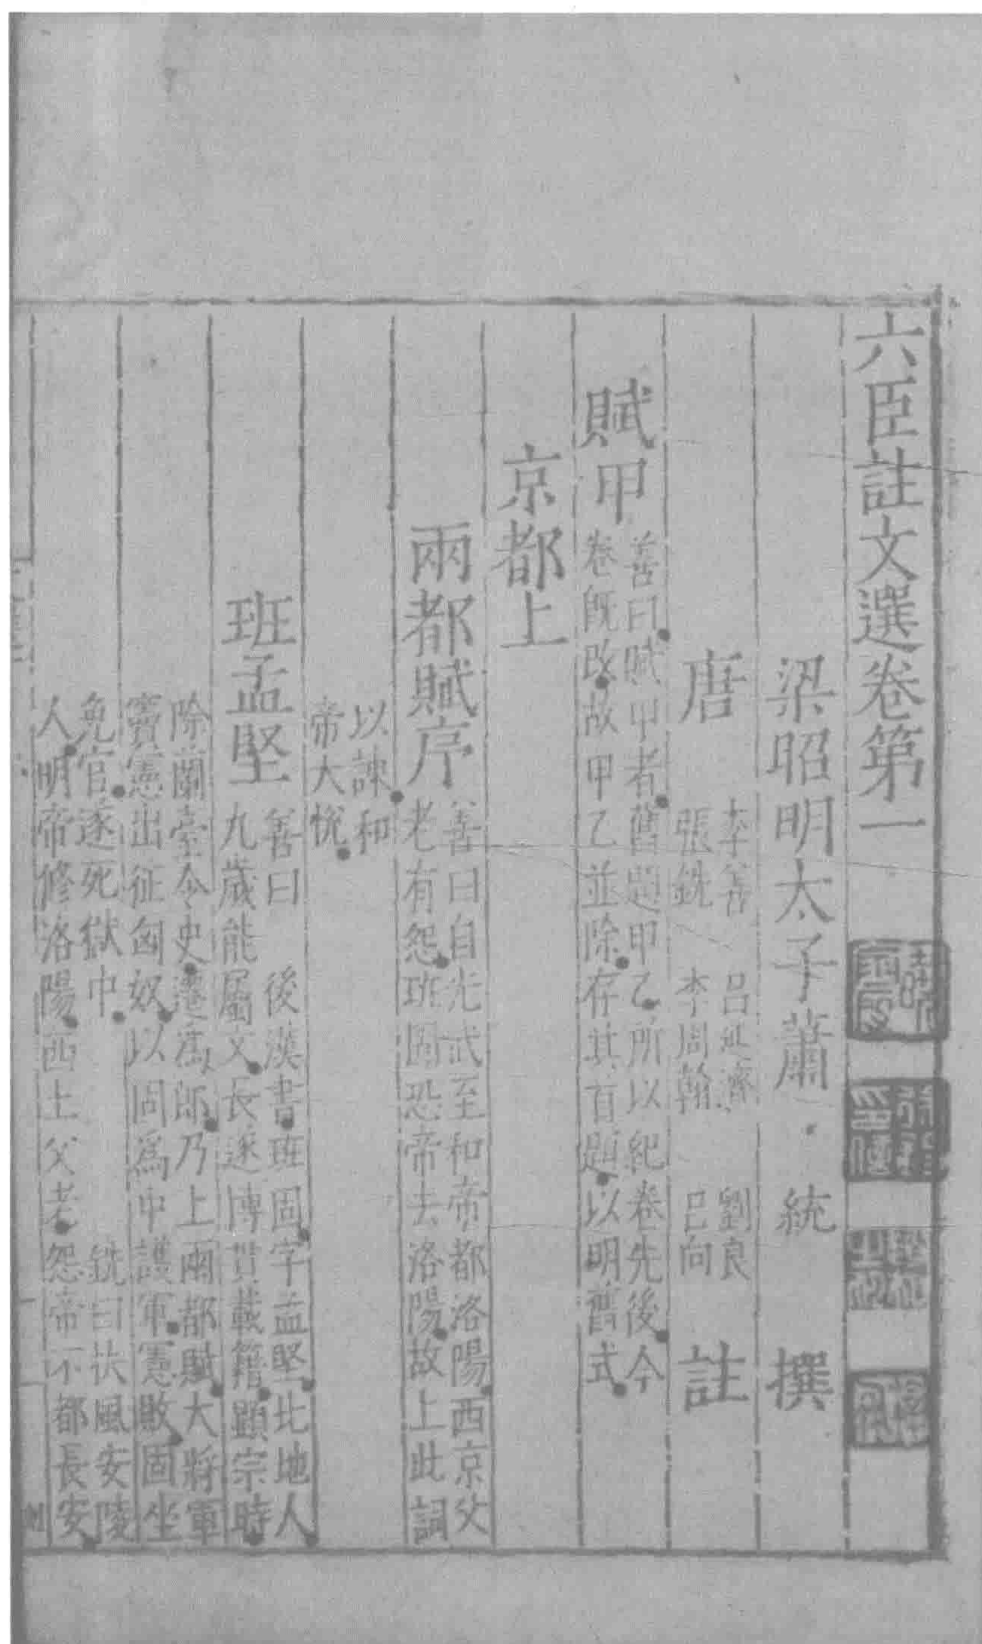 六臣註文選卷第一
梁昭明太子蕭統撰
唐
李善 呂延濟 劉良
張銑 李周翰 呂向
註
賦甲
善曰賦甲者舊題甲乙所以紀卷先後今
卷既改故甲乙並除存其首題以明舊式
京都上
兩都賦序
善曰自光武至和帝都洛陽西京父
老有怨班固恐帝去洛陽故上此詞
以諫和
帝大悅
班孟堅
善曰 後漢書班固字孟堅北地人
九歲能屬文長遂博貫載籍顯宗時
除蘭臺令史遷為郎乃上兩都賦大將軍
竇憲出征匈奴以固為中護軍憲敗固坐
免官遂死獄中 銑曰扶風安陵
人明帝修洛陽西土父老怨帝不都長安